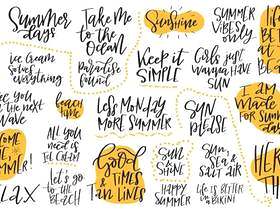 Summer
days
Take me
to the
Ocean
Sunshine
SUMMER
VIBES
only
ice cream
solves
everything
Paradise
found
Keep it
SIMPLE
Girls just
wanna HAVE
SUN
you in
the next
Wave
beach
time
Less Monday
MORE SUMMER
SUN
PLEASE
I am
MADE
FOR
SUMMER!
All you
need is
ICE CREAM
Good
TIMES
& TAN LINES
SUN
SHINE
SUN
SEA &
SALT AIR
Let's go
to the
BEACH
HAPPY
SUMMER
Life is BETTER
IN BIKINI